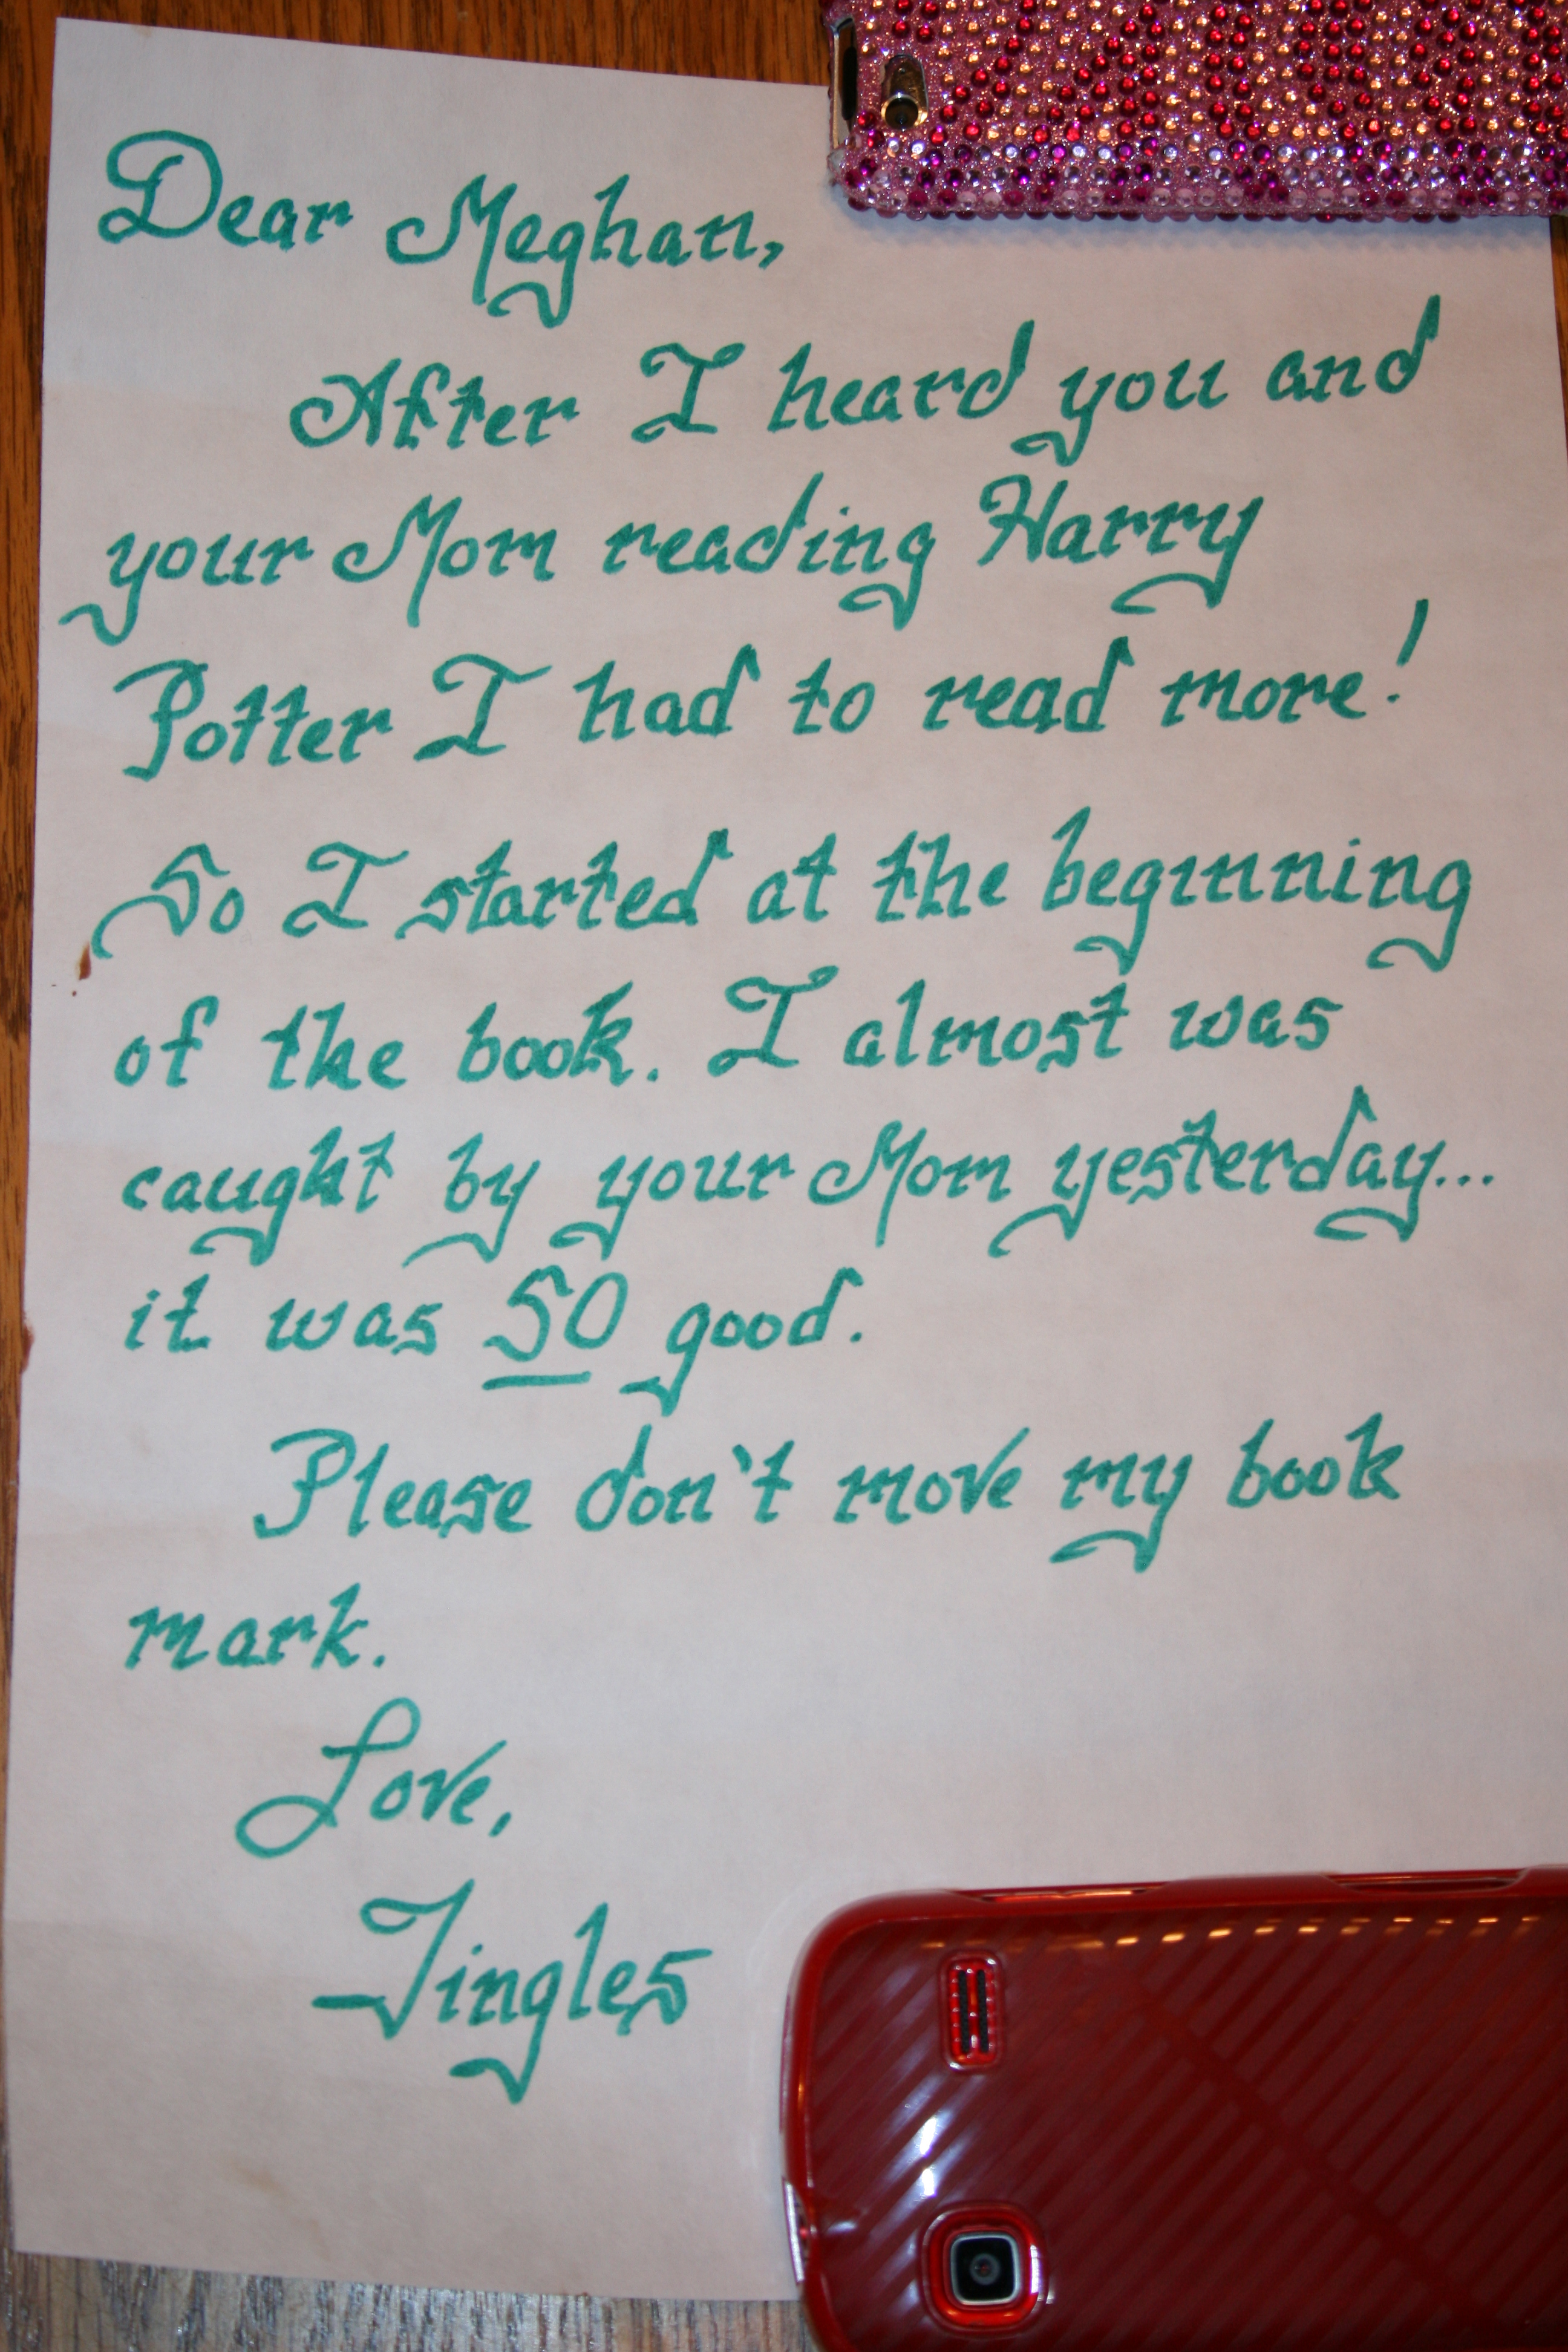 Dear Meghan,
After I heard you and
your Mom reading Harry
Potter I had to read more!
So I started at the beginning
of the book. I almost was
caught by your Mom yesterday...
it was SO good.
Please don't move my book
mark.
Love,
Jingles